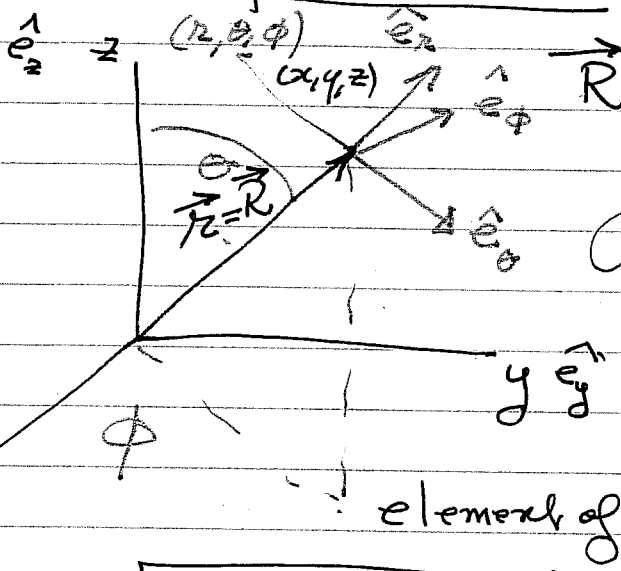 ê_z z (r, θ, φ) ê_r R⃗
(x, y, z) ê_φ
θ
r⃗ = R⃗ ê_θ
y ê_y
φ
element of